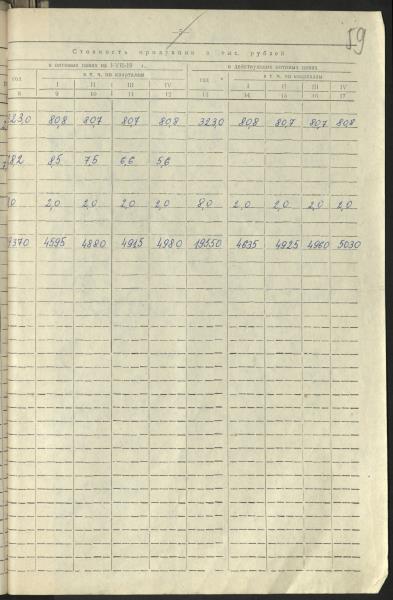 59
Стоимость продукции в тыс. рублей
в оптовых ценах на I-VII-19 г. в действующих оптовых ценах
год в т. ч. по кварталам год в т. ч. по кварталам
I II III IV I II III IV
8 9 10 11 12 13 14 15 16 17
323,0 80,8 80,7 80,7 80,8 323,0 80,8 80,7 80,7 80,8
282 8,5 7,5 6,6 5,6
2,0 2,0 2,0 2,0 8,0 2,0 2,0 2,0 2,0
4595 4880 4915 4980 19550 4635 4925 4960 5030